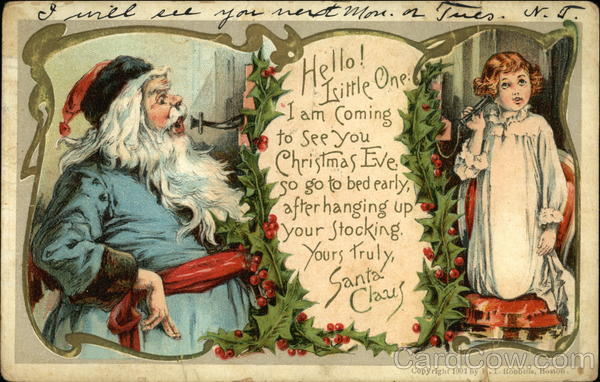 I will see you next Mon. or Tues. N. T.
Hello!
Little One:
I am Coming
to see you
Christmas Eve,
so go to bed early,
after hanging up
your stocking.
Yours truly,
Santa
Claus
Copyright 1907 by Robbins, Boston.
CardCow.com